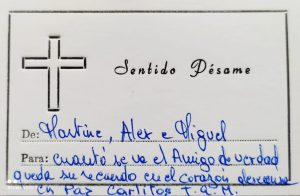 Sentido Pésame
De: Martine, Alex e Miguel
Para: cuanto se va el Amigo de verdad
queda su recuerdo en el corazon descanse
en Paz Carlitos T.Q.M.